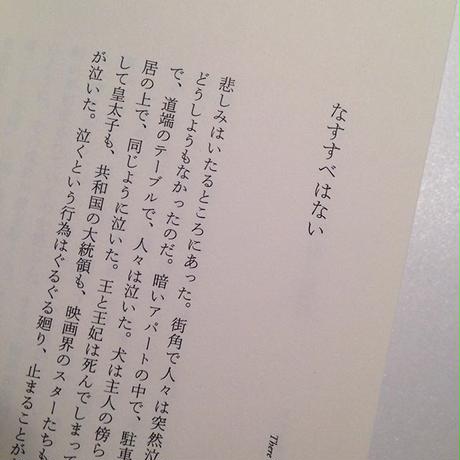 なすすべはない
There
悲しみはいたるところにあった。街角で人々は突然泣
どうしようもなかったのだ。暗いアパートの中で、駐車
で、道端のテーブルで、人々は泣いた。犬は主人の傍ら
居の上で、同じように泣いた。王と王妃は死んでしまって
して皇太子も、共和国の大統領も、映画界のスターたちも
が泣いた。泣くという行為はぐるぐる廻り、止まることが